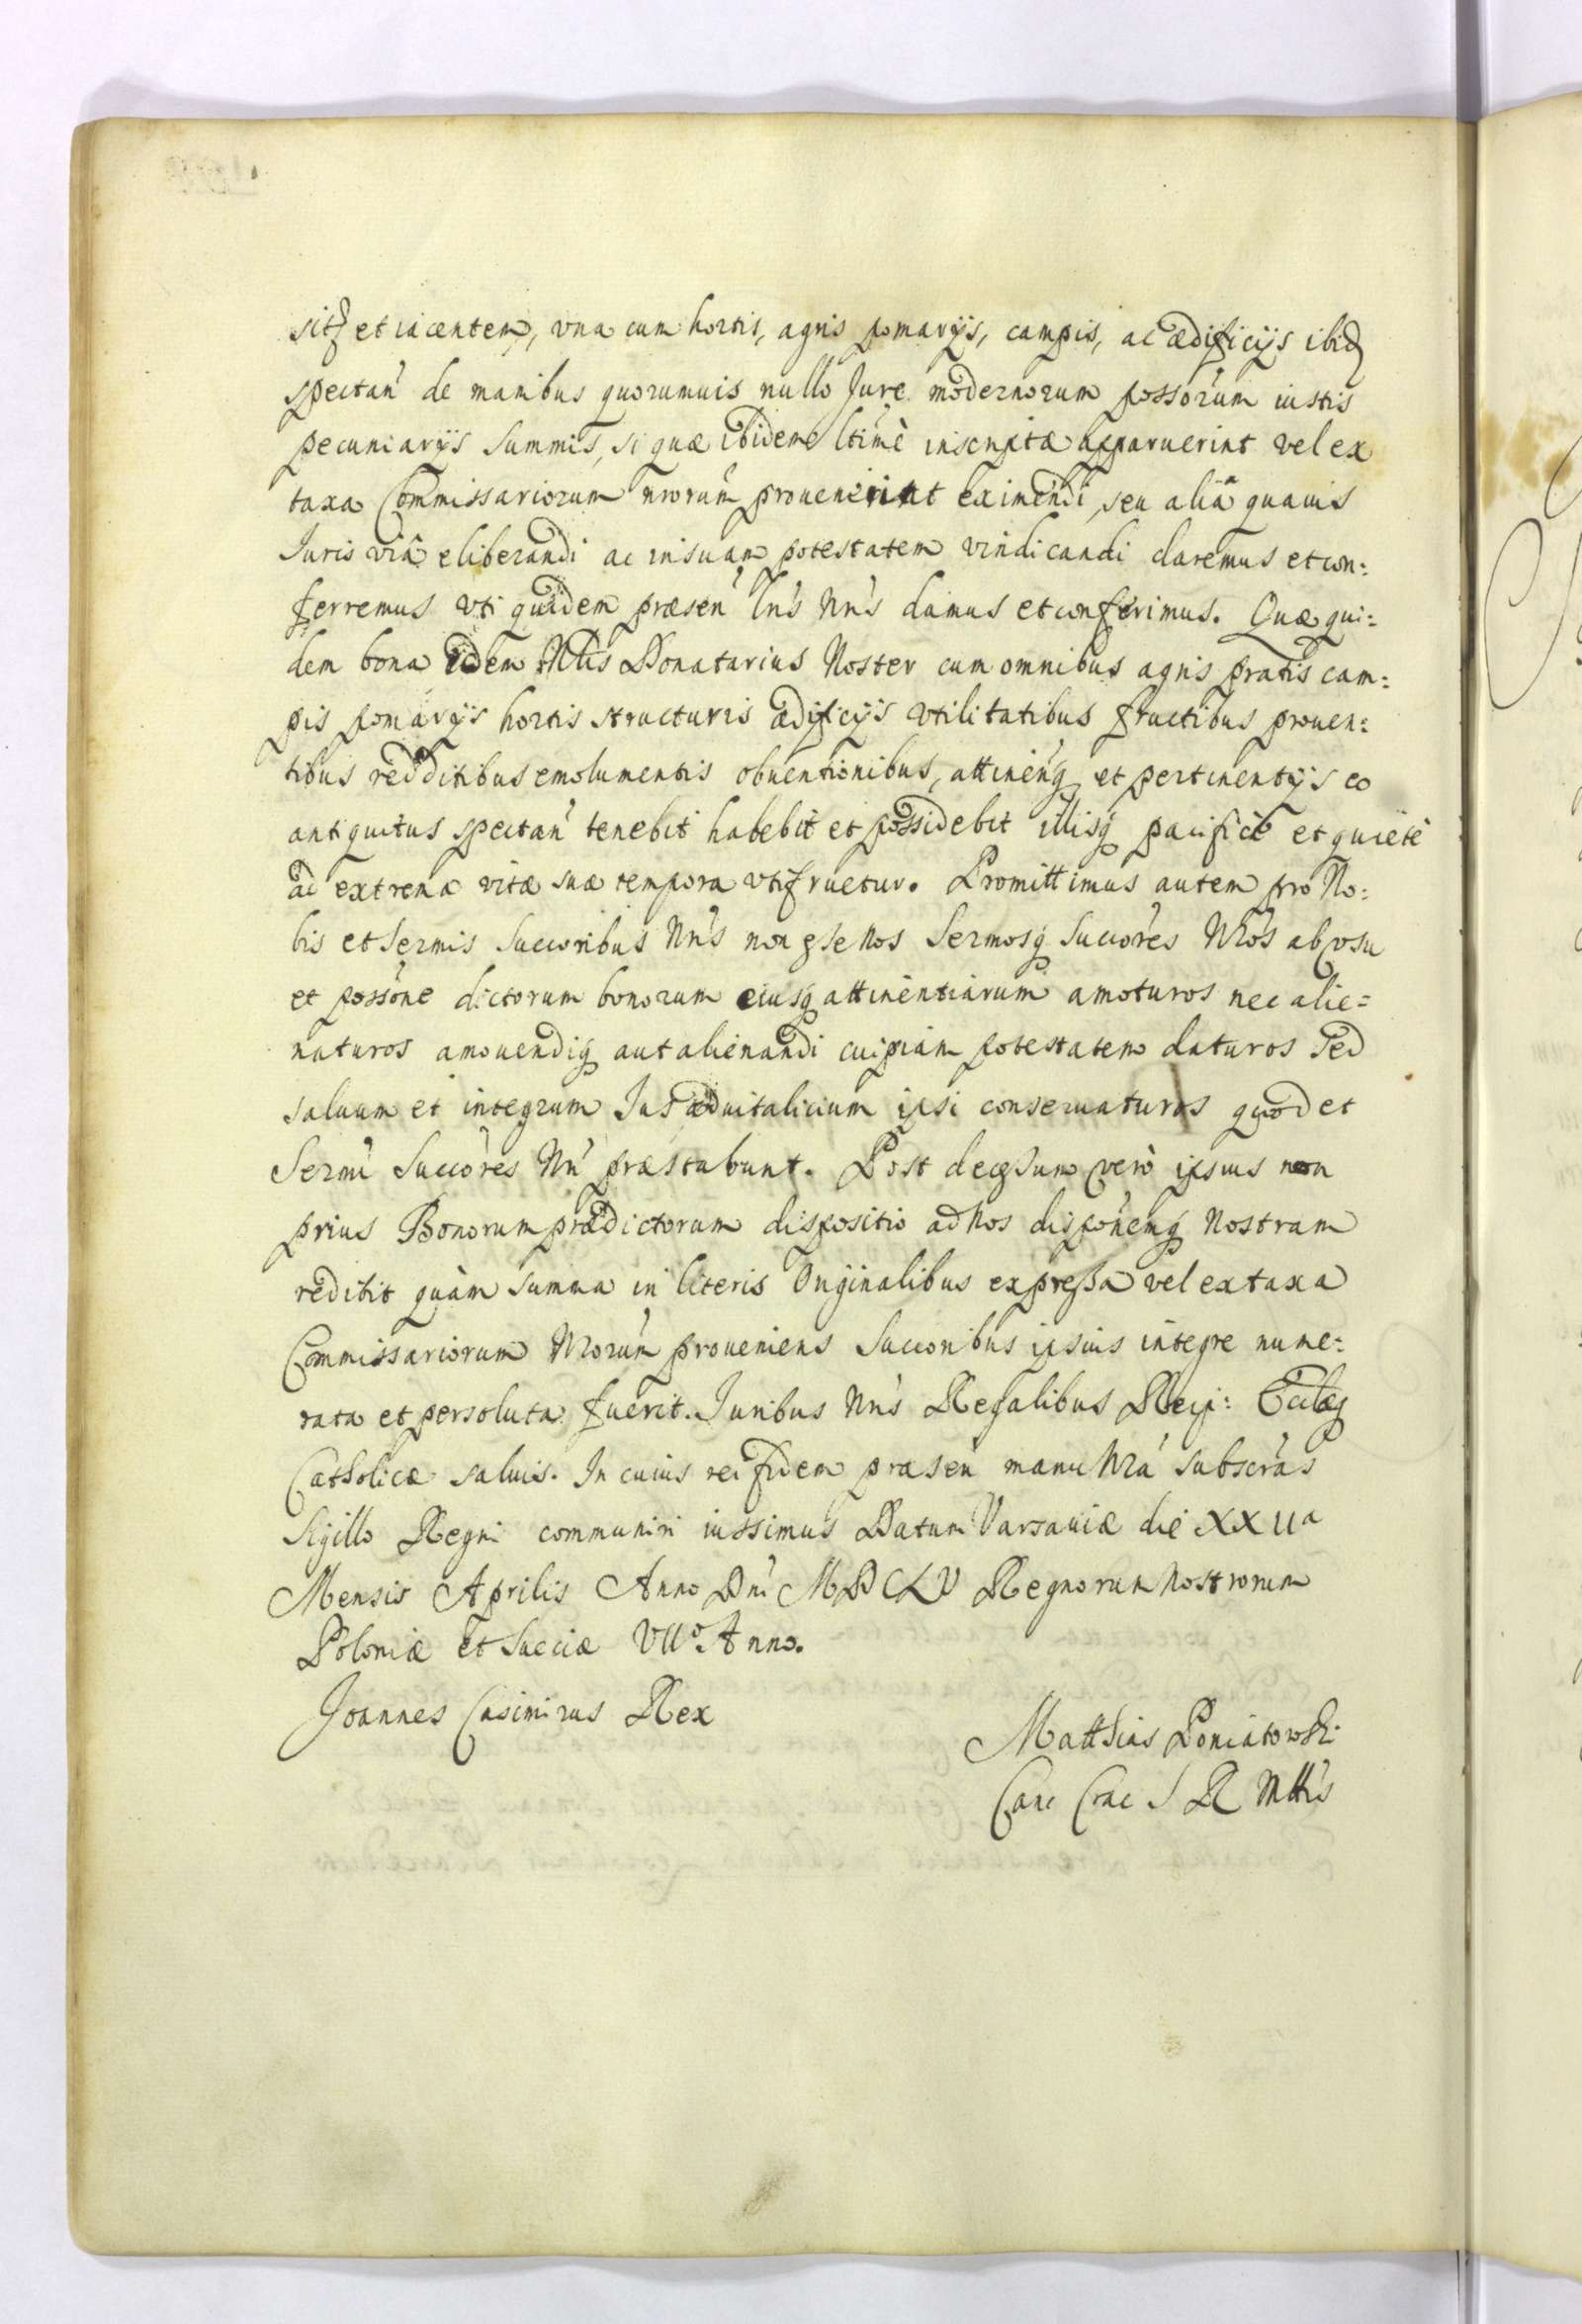 sitq et iacentem, vna cum hortis, agris pomarijs, campis, ac ædificijs ibid
spectan̄ de manibus quorumuis nullo Jure modernorum possorum iustis
pecuniarijs summis, si quæ ibidem ltime inscriptæ apparuerint vel ex
taxa Commissariorum nrorum prouenerint eximendi, seu aliâ quauis
Iuris viâ eliberandi ac in suam potestatem vindicandi daremus et con:
ferremus vti quidem præsen̄ lris Nris damus et conferimus. Quæ qui:
dem bona idem Nblis Donatarius Noster cum omnibus agris pratis cam:
pis pomarijs hortis structuris ædificijs vtilitatibus fructibus prouen:
tibus redditibus emolumentis obuentionibus, attinenq et pertinentijs eo
antiquitus spectan̄ tenebit habebit et possidebit illisq pacifice et quiete
ad extrema vitæ suæ tempora vtifruetur. Promittimus autem pro No:
bis et Sermis Succoribus Nris non esse Nos Sermosq Succores Nros ab vsu
et possone dictorum bonorum eiusq attinentiarum amoturos nec alie:
naturos amouendiq aut alienandi cuipiam potestatem daturos sed
saluum et integrum Jus aduitalicium ipsi conseruaturos quod et
Sermi Succores Nri præstabunt. Post decessum vero ipsius non
prius Bonorum prædictorum dispositio ad Nos disponemq Nostram
redibit quàm summa in literis Originalibus expreßa vel ex taxa
Commissariorum Nrorum proueniens Succoribus ipsius integre nume:
rata et persoluta fuerit. Iuribus Nris Regalibus Reip: Ecclæq
Catholicæ saluis. In cuius rei fidem præsen manu Nra subscras
Sigillo Regni communiri iussimus Datum Varsauiæ die XXIIa
Mensis Aprilis Anno Dni MDCLV Regnorum Nostrorum
Poloniæ et Sueciæ VIIo Anno.
Joannes Casimirus Rex
Matthias Poniatowski
Canc Crac S R Mttis